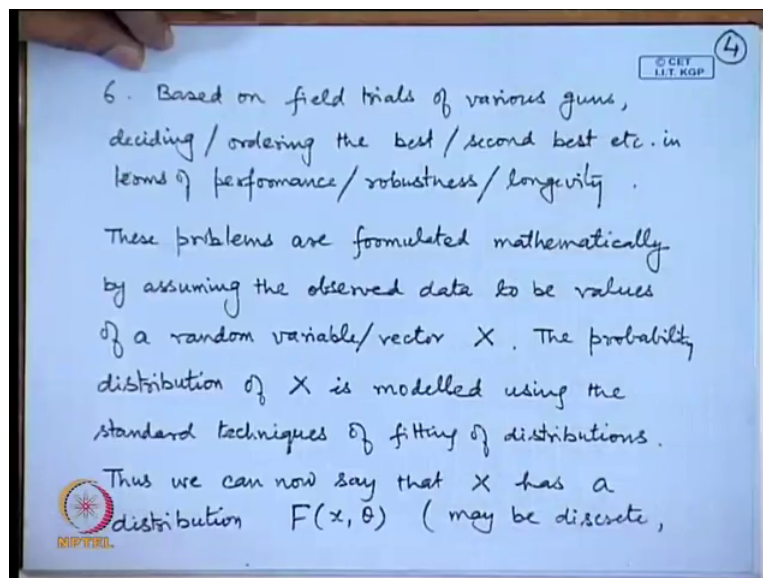 4
© CET
I.I.T. KGP
6. Based on field trials of various guns,
deciding / ordering the best / second best etc. in
terms of performance / robustness / longevity.
These problems are formulated mathematically
by assuming the observed data to be values
of a random variable / vector X. The probability
distribution of X is modelled using the
standard techniques of fitting of distributions.
Thus we can now say that X has a
distribution F(x, θ) (may be discrete,
NPTEL